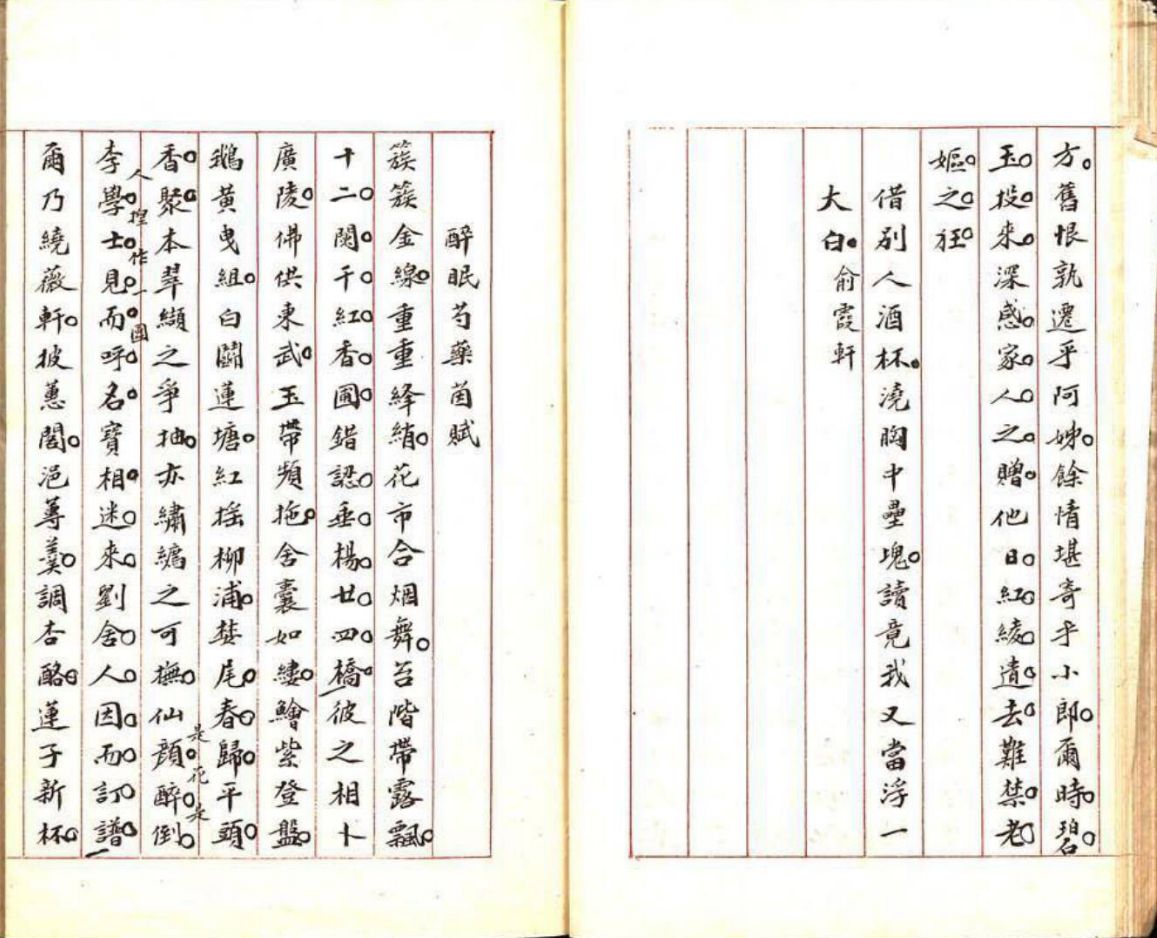 方舊恨孰遷乎阿姊餘情堪寄才小郎爾時碧
玉投來深感家人之贈他日紅綾遺去難禁老
嫗之狂
借別人酒杯澆胸中壘塊讀竟我又當浮一
大白俞霞軒
醉眠芍藥茵賦
簇簇金線重重絳綃花市合烟舞苔階帶露飄
十二闌干紅香圃錯認垂楊廿四橋彼之相卜
廣陵佛供東武玉帶頻拖舍囊如縷鱠紫登盤
鵝黃曳組白鬭蓮塘紅搖柳浦婪尾春歸平頭
香聚本翠纈之爭抽亦繡䌥之可撫仙顏醉倒
是花是
人捏作一圖
李學士見而呼名寶相迷來劉舍人因而訂譜
爾乃繞薇軒披蕙閣浥蓴羹調杏酪蓮子新杯